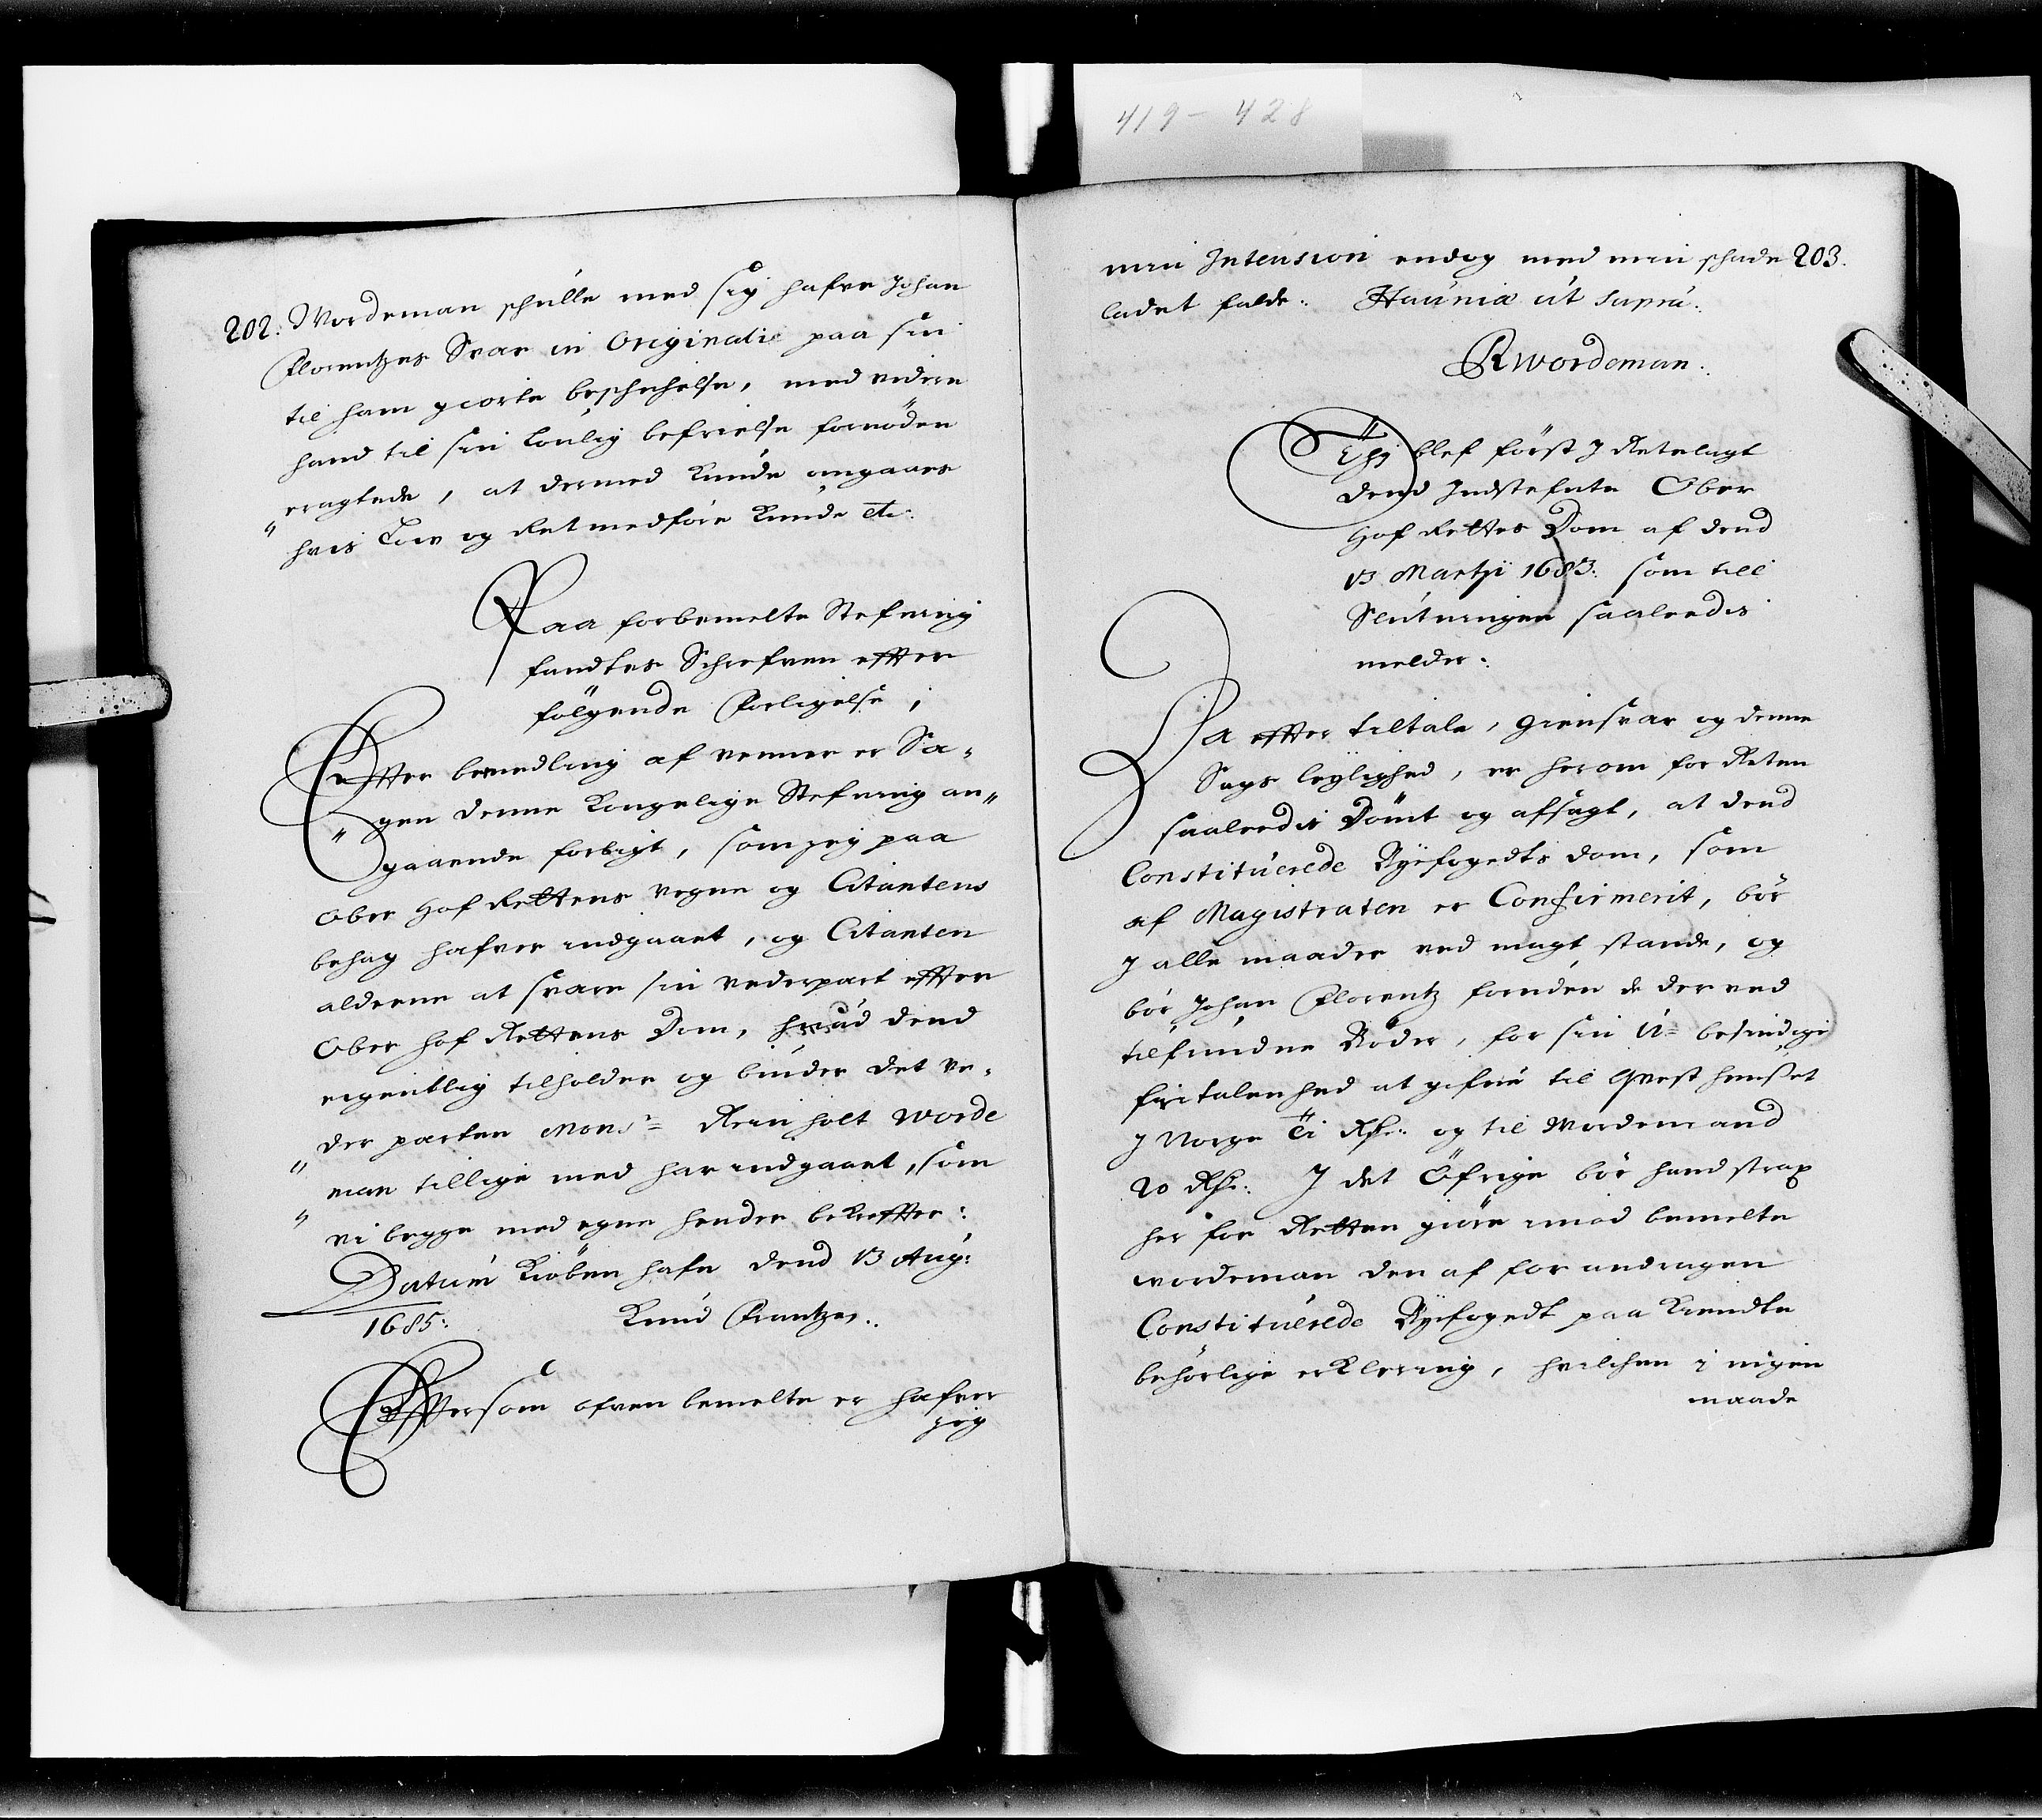 419 - 428
202. Wordeman schulle med sig hafve Johan
Florentzes Svar in Originalie paa sin
til ham giorte beschyhelse, med videre
hand til sin Lovlig befrielse fornöden
eragtede, at dermed Kunde omgaaes
hvis Low og Ret medföre Kunde etc.
Paa forbemelte Stefning
fandtes Schrefven effter
fölgende Forligelse,
Effter bemedling af venner er Sa-
gen denne Kongelige Stefning an-
gaaende forligt, som jeg paa
Ober Hof Rettens vegne og Citantens
behag hafver indgaaet, og Citanten
alderne at svare sin vederpart effter
Ober hof Rettens Dom, hvad dend
eigentlig tilholder og binder det ve-
der parten Mons:r Reinholt Worde
man tillige med har indgaaet, som
vi begge med egne hender bekreffter:
Datum Kiöbenhafn dend 13 Aug:
1685: Knud Frantzen.
Efftersom ofven bemelte er hafver
jeg
min Intension endog med min schade 203.
ladet falde. Haunia út supra.
RWordeman.
blef först J Retelagt
dend Jndstefnte Ober
Hof Rettes Dom af dend
13 Martji 1683. som till
Slutningen saaledis
melder.
Da effter tiltale, giensvar og denne
Sags leylighed, er herom for Reten
saaledis Dömt og afsagt, at dend
Constituerede Byefogedts dom, som
af Magistraten er Confirmerit, bör
J alle maader ved magt stande, og
bör Johan Florentz foruden de derved
tilfundne Böder, for sin U= besindige
fritalenhed at gifve til Qvesthuuset
J Norge Ti Rdr. og til Wordemand
20 Rdr. J det Öfrige bör hand strax
her for Retten giöre imod bemelte
wordeman den af for andragen
Constituerede Byefogedt paa Kiendte
behörlige erklering, hvilchen i ingen
maade